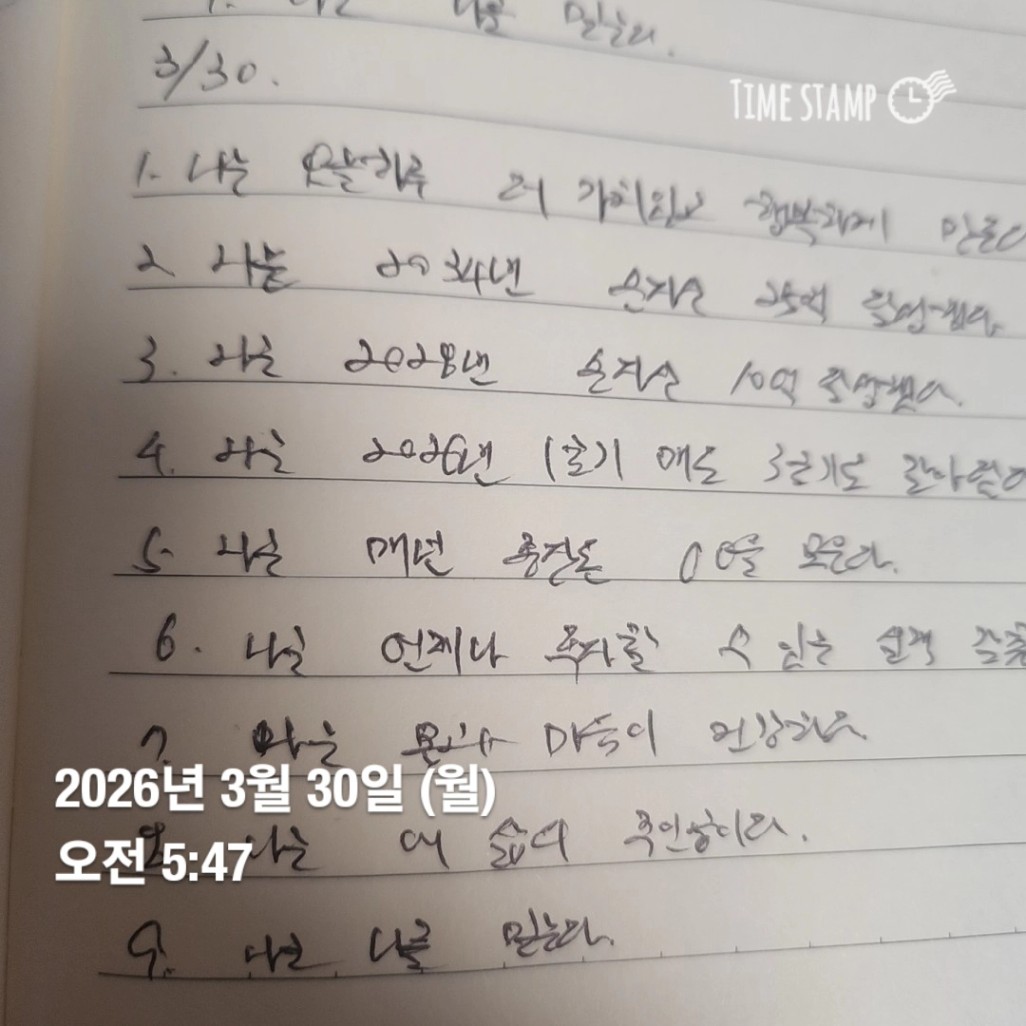 나는 나를 믿는다.
3/30.
TIME STAMP
1. 나는 오늘하루 더 가치있고 행복하게 만든다
2. 나는 2034년 순자산 25억 달성했다.
3. 나는 2028년 순자산 10억 달성했다.
4. 나는 2026년 1분기 매도
5. 나는 매년 을 모은다.
6. 나는 언제나 투자할 수 있는 실력
7. 나는 몸과 마음이 건강하다.
2026년 3월 30일 (월)
8. 나는 내 삶의 주인공이다.
오전 5:47
9. 나는 나를 믿는다.